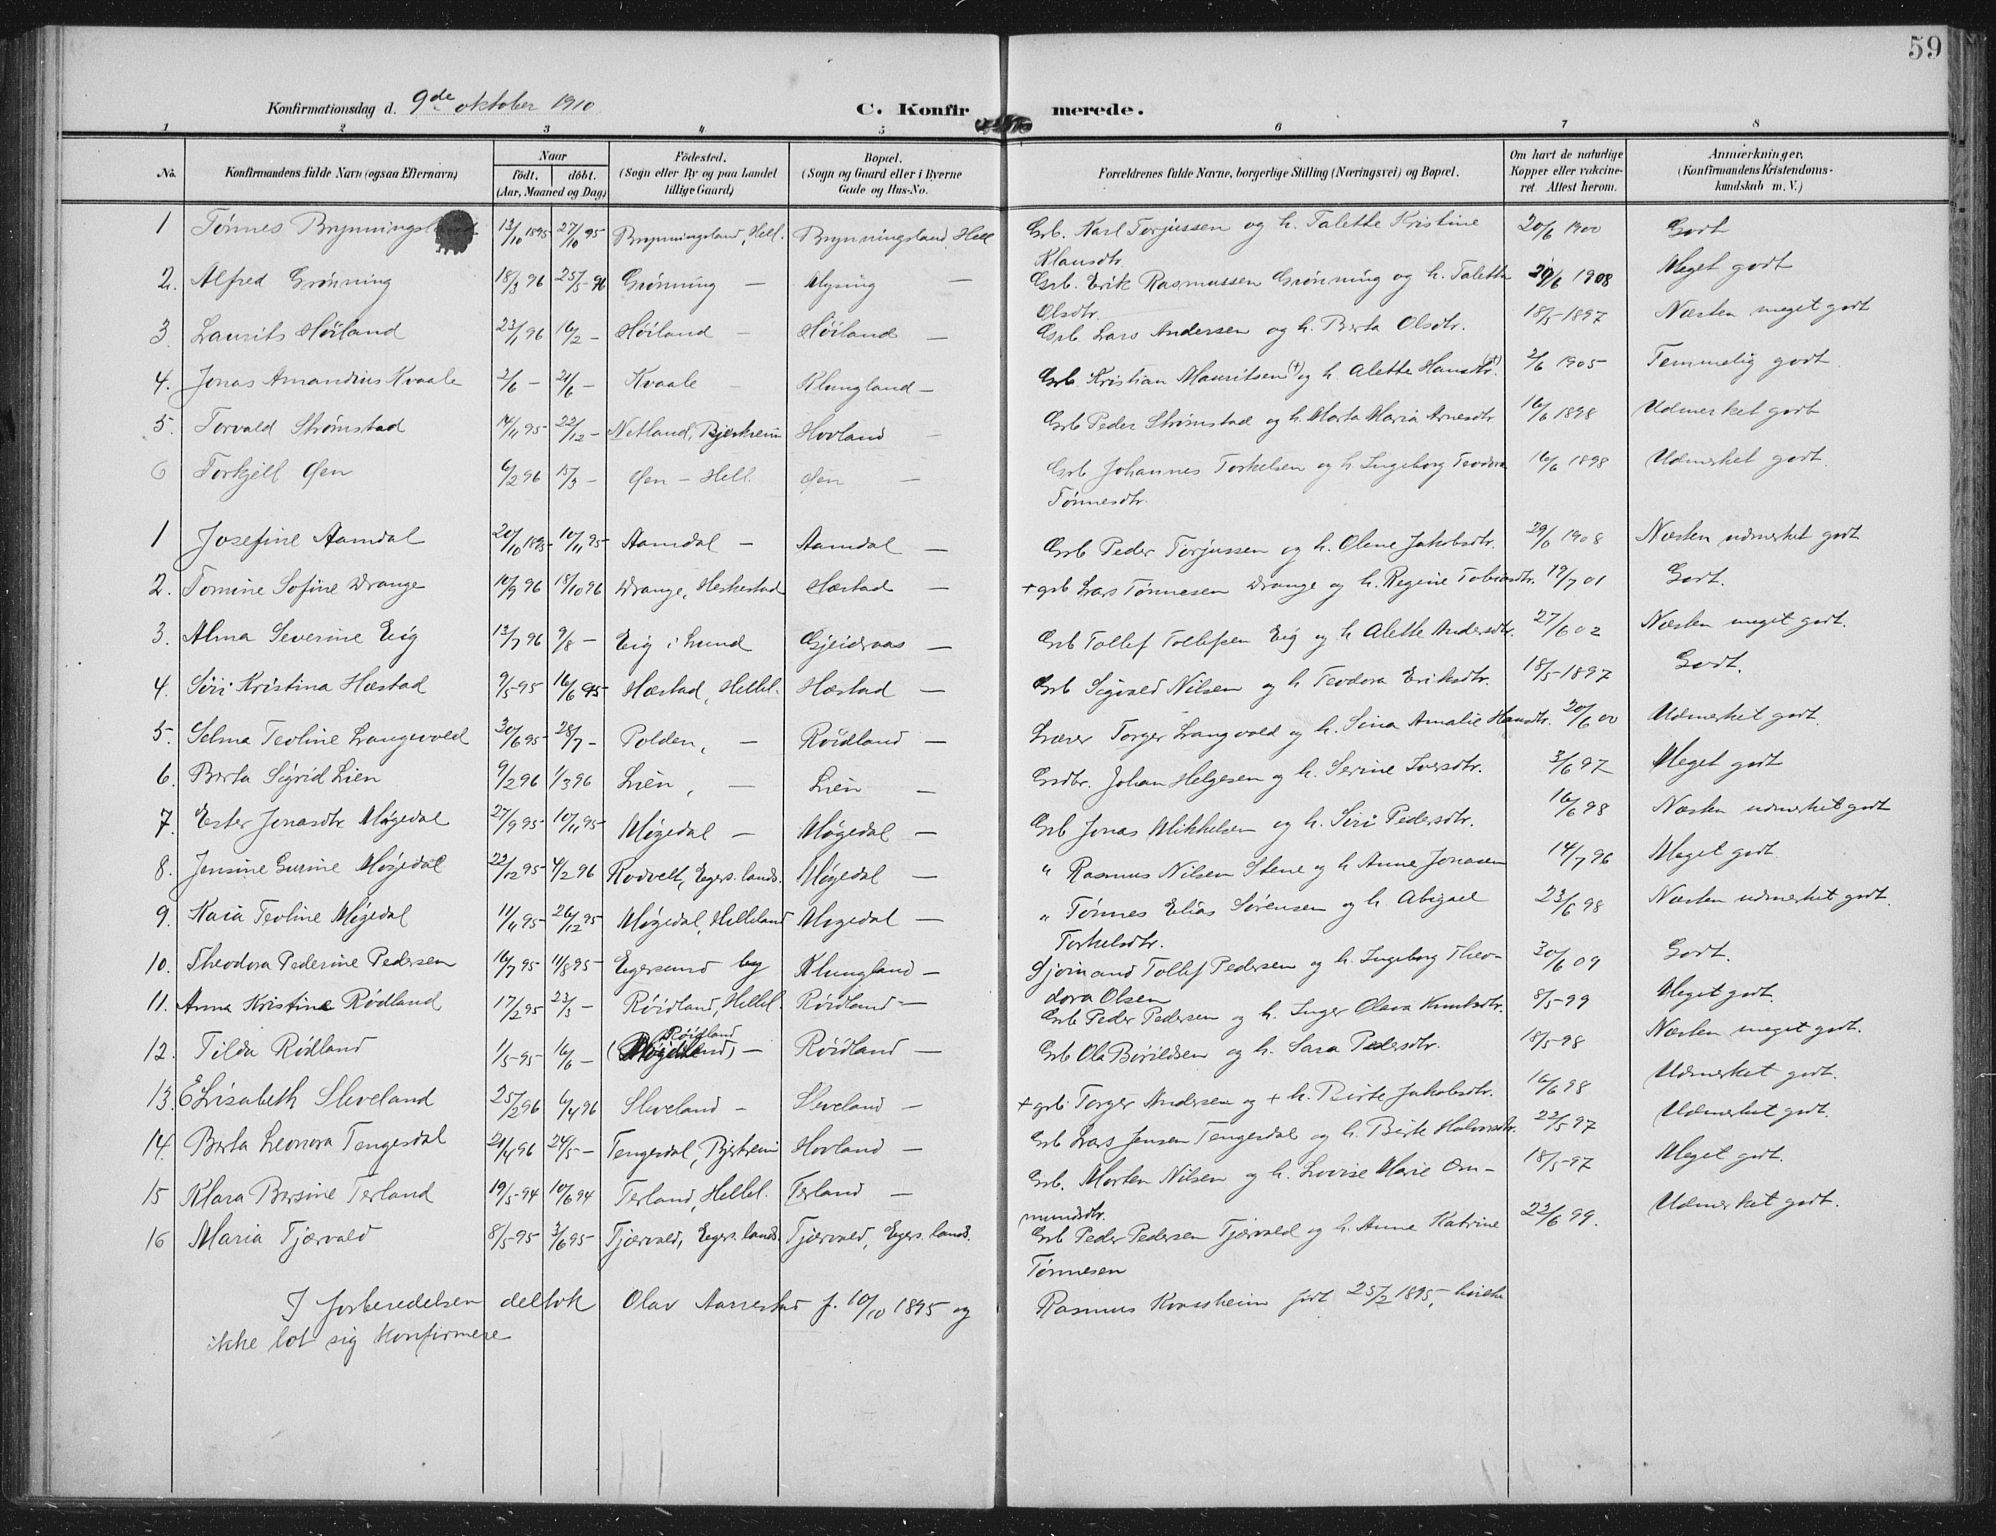 59
Konfirmationsdag d. 9de oktober 1910
C. Konfirmerede.
1 2 3 4 5 6 7 8
No. Konfirmandens fulde Navn (ogsaa Efternavn) Naar født. døbt. (Aar, Maaned og Dag) Fødested. (Sogn eller By og paa Landet tillige Gaard) Bopæl. (Sogn og Gaard eller i Byerne Gade og Hus-No. Forældrenes fulde Navne, borgerlige Stilling (Næringsvei) og Bopæl. Om havt de naturlige Kopper eller vakcineret. Attest herom. Anmærkninger. (Konfirmandens Kristendomskundskab m. V.)
1 Tønnes Brynningsland 13/10 1895 27/10 95 Brynningsland, Hell. Brynningsland, Hell Grb. Karl Torjussen og h. Talette Kristine 20/6 1900 Godt
Klausdtr.
2. Alfred Grønning 18/3 96 25/5-96 Grønning — Mysing — Grb. Erik Rasmussen Grønning og h. Talette 29/6 1908 Meget godt
Olsdtr.
3. Laurits Høiland 23/1 96 16/2 — Høiland — Høiland — Grb. Lars Andersen og h. Berta Olsdtr. 18/5-1897 Næsten meget godt
4. Jonas Amandius Kvaale 2/6 — 21/6 — Kvaale — Klungland — Grb. Kristian Mauritsen (+) og h. Alette Hansdtr. (+) 2/6 1905 Temmelig godt
5. Torvald Strømstad 14/11 95 22/12 — Netland, Bjerkreim Hovland — Grb Peder Strømstad og h. Marta Maria Arnesdtr 16/6 1898 Udmerket godt
6 Torkjell Øen 6/2 96 15/3 — Øen — Hell. Øen — Grb Johannes Torkelsen og h. Ingeborg Teodora 16/6 1898 Udmerket godt.
Tønnesdtr.
1 Josefine Aamdal 20/10 1895 10/11 95 Aamdal — Aamdal — Grb Peder Torjussen og h. Oline Jakobsdtr. 29/6 1908 Næsten udmerket godt
2. Tomine Sofine Drange 10/9 96 18/10 96 Drange, Heskestad Hæstad — + grb Lars Tønnesen Drange og h. Regine Tobiasdtr. 19/7 01 Godt.
3. Alma Severine Eig 13/7 96 9/8 — Eig i Lund Gjeidraas — Grb Tollef Tollefsen Eig og h Alette Andersdtr. 27/6 02 Næsten meget godt.
4. Siri Kristina Hæstad 9/5-95 16/6 95 Hæstad, Hellel. Hæstad — Grb Sigvald Nilsen og h Teodora Eriksdtr. 18/5-1897 Godt.
5. Selma Teoline Langevold 30/6 95 28/7 — Polden, — Røidland — Lærer Torger Langvald og h. Sina Amalie Hansdtr. 20/6 00 Udmerket godt.
6. Berta Sigrid Lien 9/2 96 1/3 96 Lien, — Lien — Gsdbr. Johan Helgesen og h. Serine Iversdtr. 3/6 97 Meget godt
7. Ester Jonasdtr Møgedal 27/9 95 10/11 95 Møgedal — Møgedal — Grb Jonas Mikkelsen og h. Siri Pedersdtr. 16/6 98 Næsten udmerket godt
8. Jensine Gurine Møgedal 22/12 95 4/2 96 Rodvelt, Egers. lands. Møgedal — " Rasmus Nilsen Stene og h Anne Jonasen 14/7 96 Meget godt
9. Kaia Teoline Møgedal 11/11 95 26/12 95 Møgedal, Helleland Møgedal — " Tønnes Elias Sørensen og h. Abigael 23/6 98 Næsten udmerket godt.
Torkelsdtr.
10. Theodora Pederine Pedersen 16/7 95 11/8 95 Egersund by Klungland — Sjømand Tollef Pedersen og h. Ingeborg Theo- 30/6 09 Godt.
dora Olsen
11. Anna Kristine Rødland 17/2 95 23/3 — Røidland, Hellel. Røidland — Grb Peder Pedersen og h. Inger Olava Knutsdtr. 8/5-99 Meget godt.
12. Tilda Rødland 1/5-95 16/6 — Røidland — Røidland — Grb Ola Børildsen og h. Sara Pedersdtr. 18/5-98 Næsten meget godt.
13. Elisabeth Sleveland 25/2 96 6/4 96 Sleveland — Sleveland — + grb. Torger Andersen og + h. Birte Jakobsdtr. 16/6 98 Udmerket godt.
14. Berta Leonora Tengesdal 21/4 96 24/5 — Tengesdal, Bjerkreim Hovland — Grb Lars Jensen Tengesdal og h. Birte Halvorsdtr 22/5 97 Udmerket godt.
15 Klara Bersine Terland 19/5-94 10/6 94 Terland, Hellel. Terland — Grb. Morten Nilsen og h. Lovise Marie Om- 18/5-97 Meget godt.
mundsdtr.
16 Maria Tjærvald 8/5-95 3/6 95 Tjærvald, Egers. lands. Tjærvald, Egers. lands. Grb Peder Pedersen Tjærvald og h. Anne Katrine 22/6 99. Udmerket godt.
Tønnesen
I forberedelsen deltok Olav Aarrestad f. 10/10 1895 og Rasmus Kvassheim født 25/2 1895,
ikke lot sig konfirmere